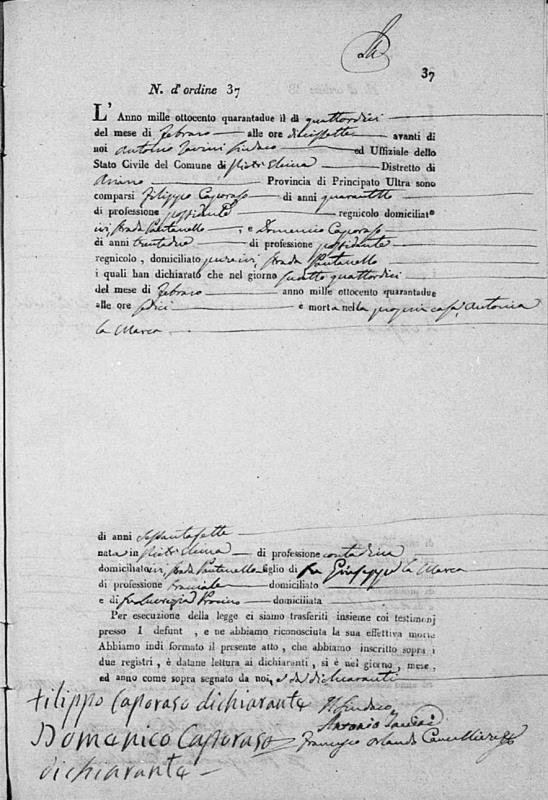 37
N. d'ordine 37
L'Anno mille ottocento quarantadue il dì quattordici
del mese di Febraro alle ore diecisette avanti di
noi Antonio Sindaco ed Uffiziale dello
Stato Civile del Comune di Pietr'Elcina Distretto di
Ariano Provincia di Principato Ultra sono
comparsi Filippo Caporaso di anni quarantotto
di professione possidente regnicolo domiciliato
ivi, strada Pantanello, e Domenico Caporaso
di anni trentadue di professione possidente
regnicolo, domiciliato pure ivi, strada Pantanello
i quali han dichiarato che nel giorno quattordici
del mese di Febraro anno mille ottocento quarantadue
alle ore sedici è morta nella propria casa Antonia
la Marca
di anni Settantasette
nata in Pietr'Elcina di professione contadina
domiciliato ivi, strada Pantanello figlio di fu Giuseppe la Marca
di professione bracciale domiciliato
e di fu Lucrezia domiciliata
Per esecuzione della legge ci siamo trasferiti insieme coi testimonj
presso l defunt , e ne abbiamo riconosciuta la sua effettiva morte
Abbiamo indi formato il presente atto, che abbiamo inscritto sopra i
due registri, e datane lettura ai dichiaranti, si è nel giorno, mese,
ed anno come sopra segnato da noi, e dai dichiaranti
Filippo Caporaso dichiarante
Il Sindaco
Antonio
Domenico Caporaso
Francesco Orlando Cancelliere
dichiarante